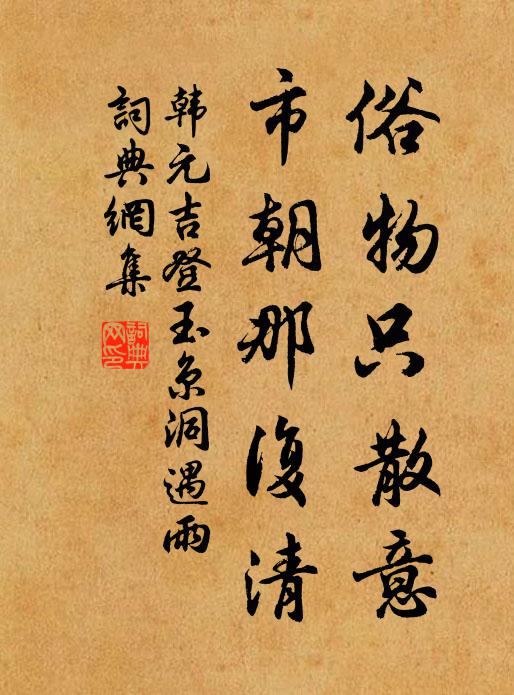 俗物只散意
市朝那復清
韩元吉登玉京洞遇雨
詞典網集
詞典
网印